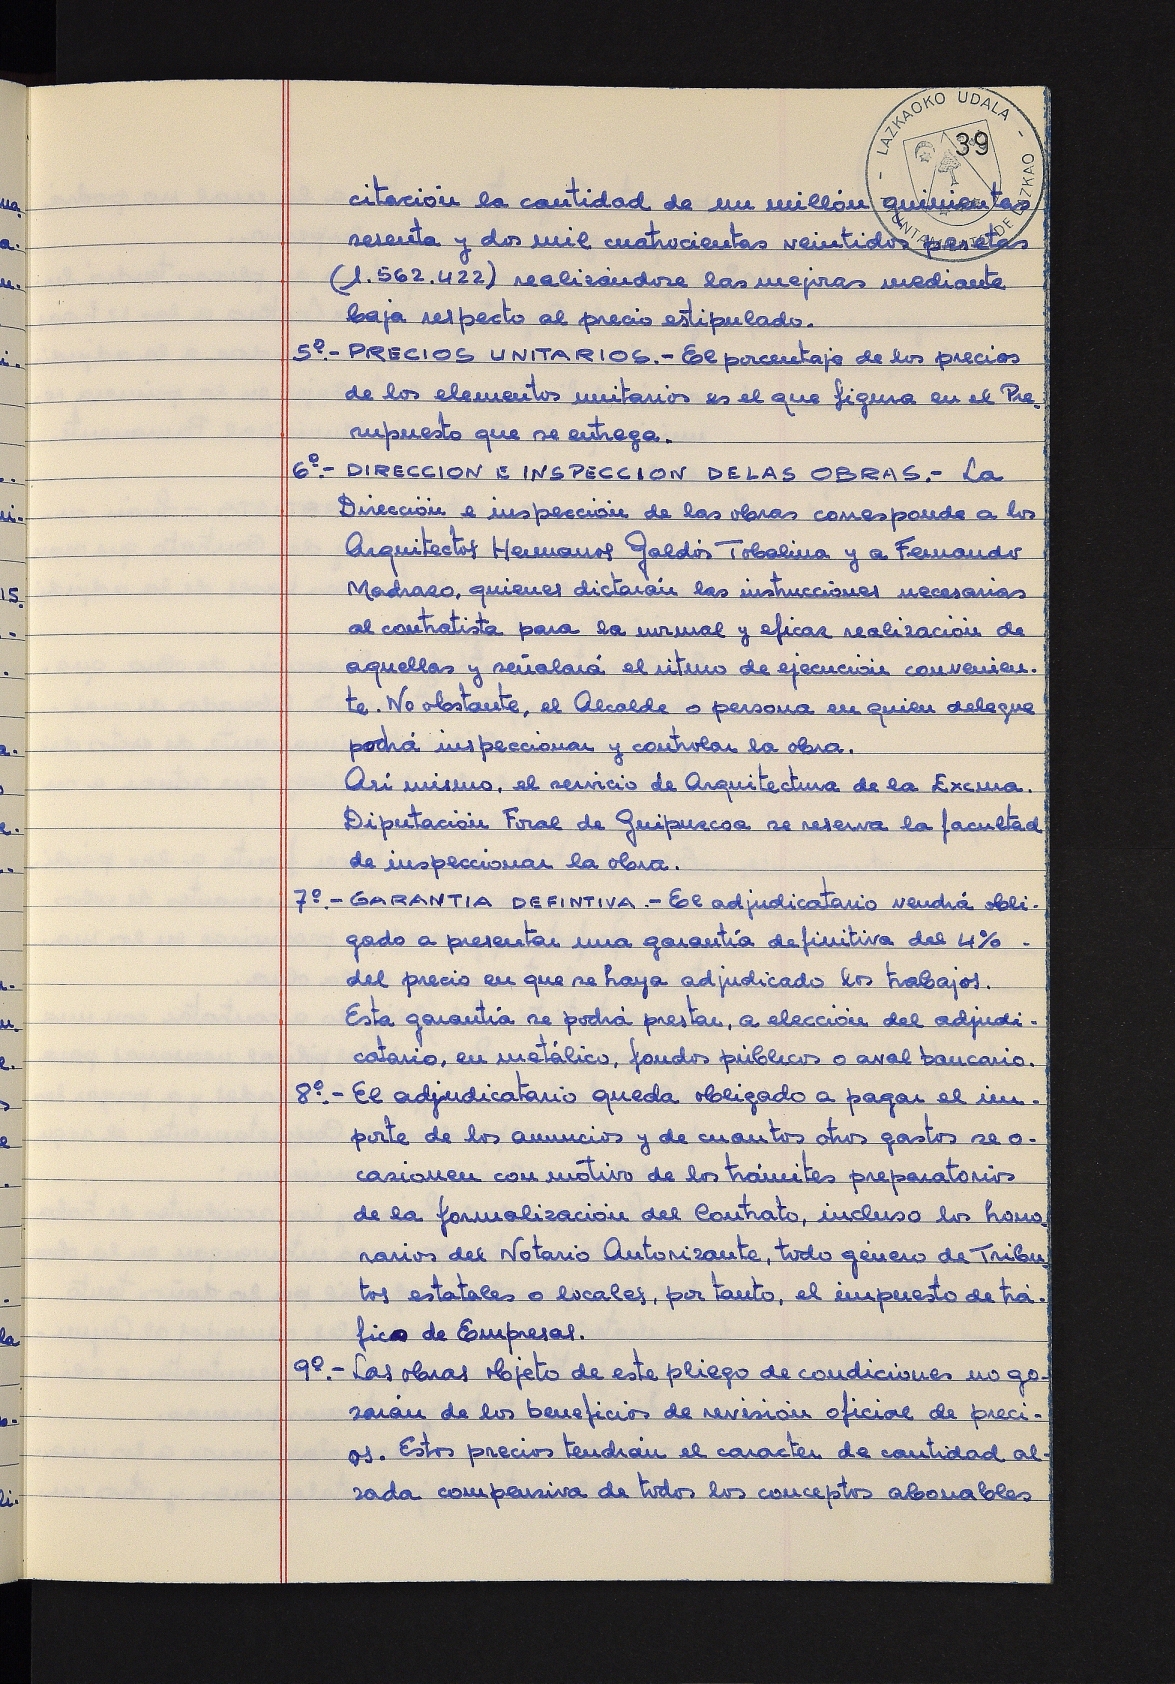 LAZKAOKO UDALA - AYUNTAMIENTO DE LAZKAO -
39
citación la cantidad de un millón quinientas
sesenta y dos mil cuatrocientas veintidos pesetas
(1.562.422) realizándose las mejoras mediante
baja respecto al precio estipulado.
5º.- PRECIOS UNITARIOS.- El porcentaje de los precios
de los elementos unitarios es el que figura en el Pre-
supuesto que se entrega.
6º.- DIRECCION E INSPECCION DE LAS OBRAS.- La
Dirección e inspección de las obras corresponde a los
Arquitectos Hermanos Galdós Tobalina y a Fernando
Madrazo, quienes dictarán las instrucciones necesarias
al contratista para la normal y eficaz realización de
aquellas y señalará el ritmo de ejecución convenien-
te. No obstante, el Alcalde o persona en quien delegue
podrá inspeccionar y controlar la obra.
Asi mismo, el servicio de Arquitectura de la Excma.
Diputación Foral de Guipuzcoa se reserva la facultad
de inspeccionar la obra.
7º.- GARANTIA DEFINTIVA.- El adjudicatario vendrá obli-
gado a presentar una garantía definitiva del 4% -
del precio en que se haya adjudicado los trabajos.
Esta garantía se podrá prestar, a elección del adjudi-
catario, en metálico, fondos públicos o aval bancario.
8º.- El adjudicatario queda obligado a pagar el im-
porte de los anuncios y de cuantos otros gastos se o-
casionen con motivo de los trámites preparatorios
de la formalización del Contrato, incluso los hono-
rarios del Notario Autorizante, todo género de Tribu-
tos estatales o locales, por tanto, el impuesto de trá-
fico de Empresas.
9º.- Las obras objeto de este pliego de condiciones no go-
zarán de los beneficios de revisión oficial de preci-
os. Estos precios tendrán el caracter de cantidad al-
zada compensiva de todos los conceptos abonables